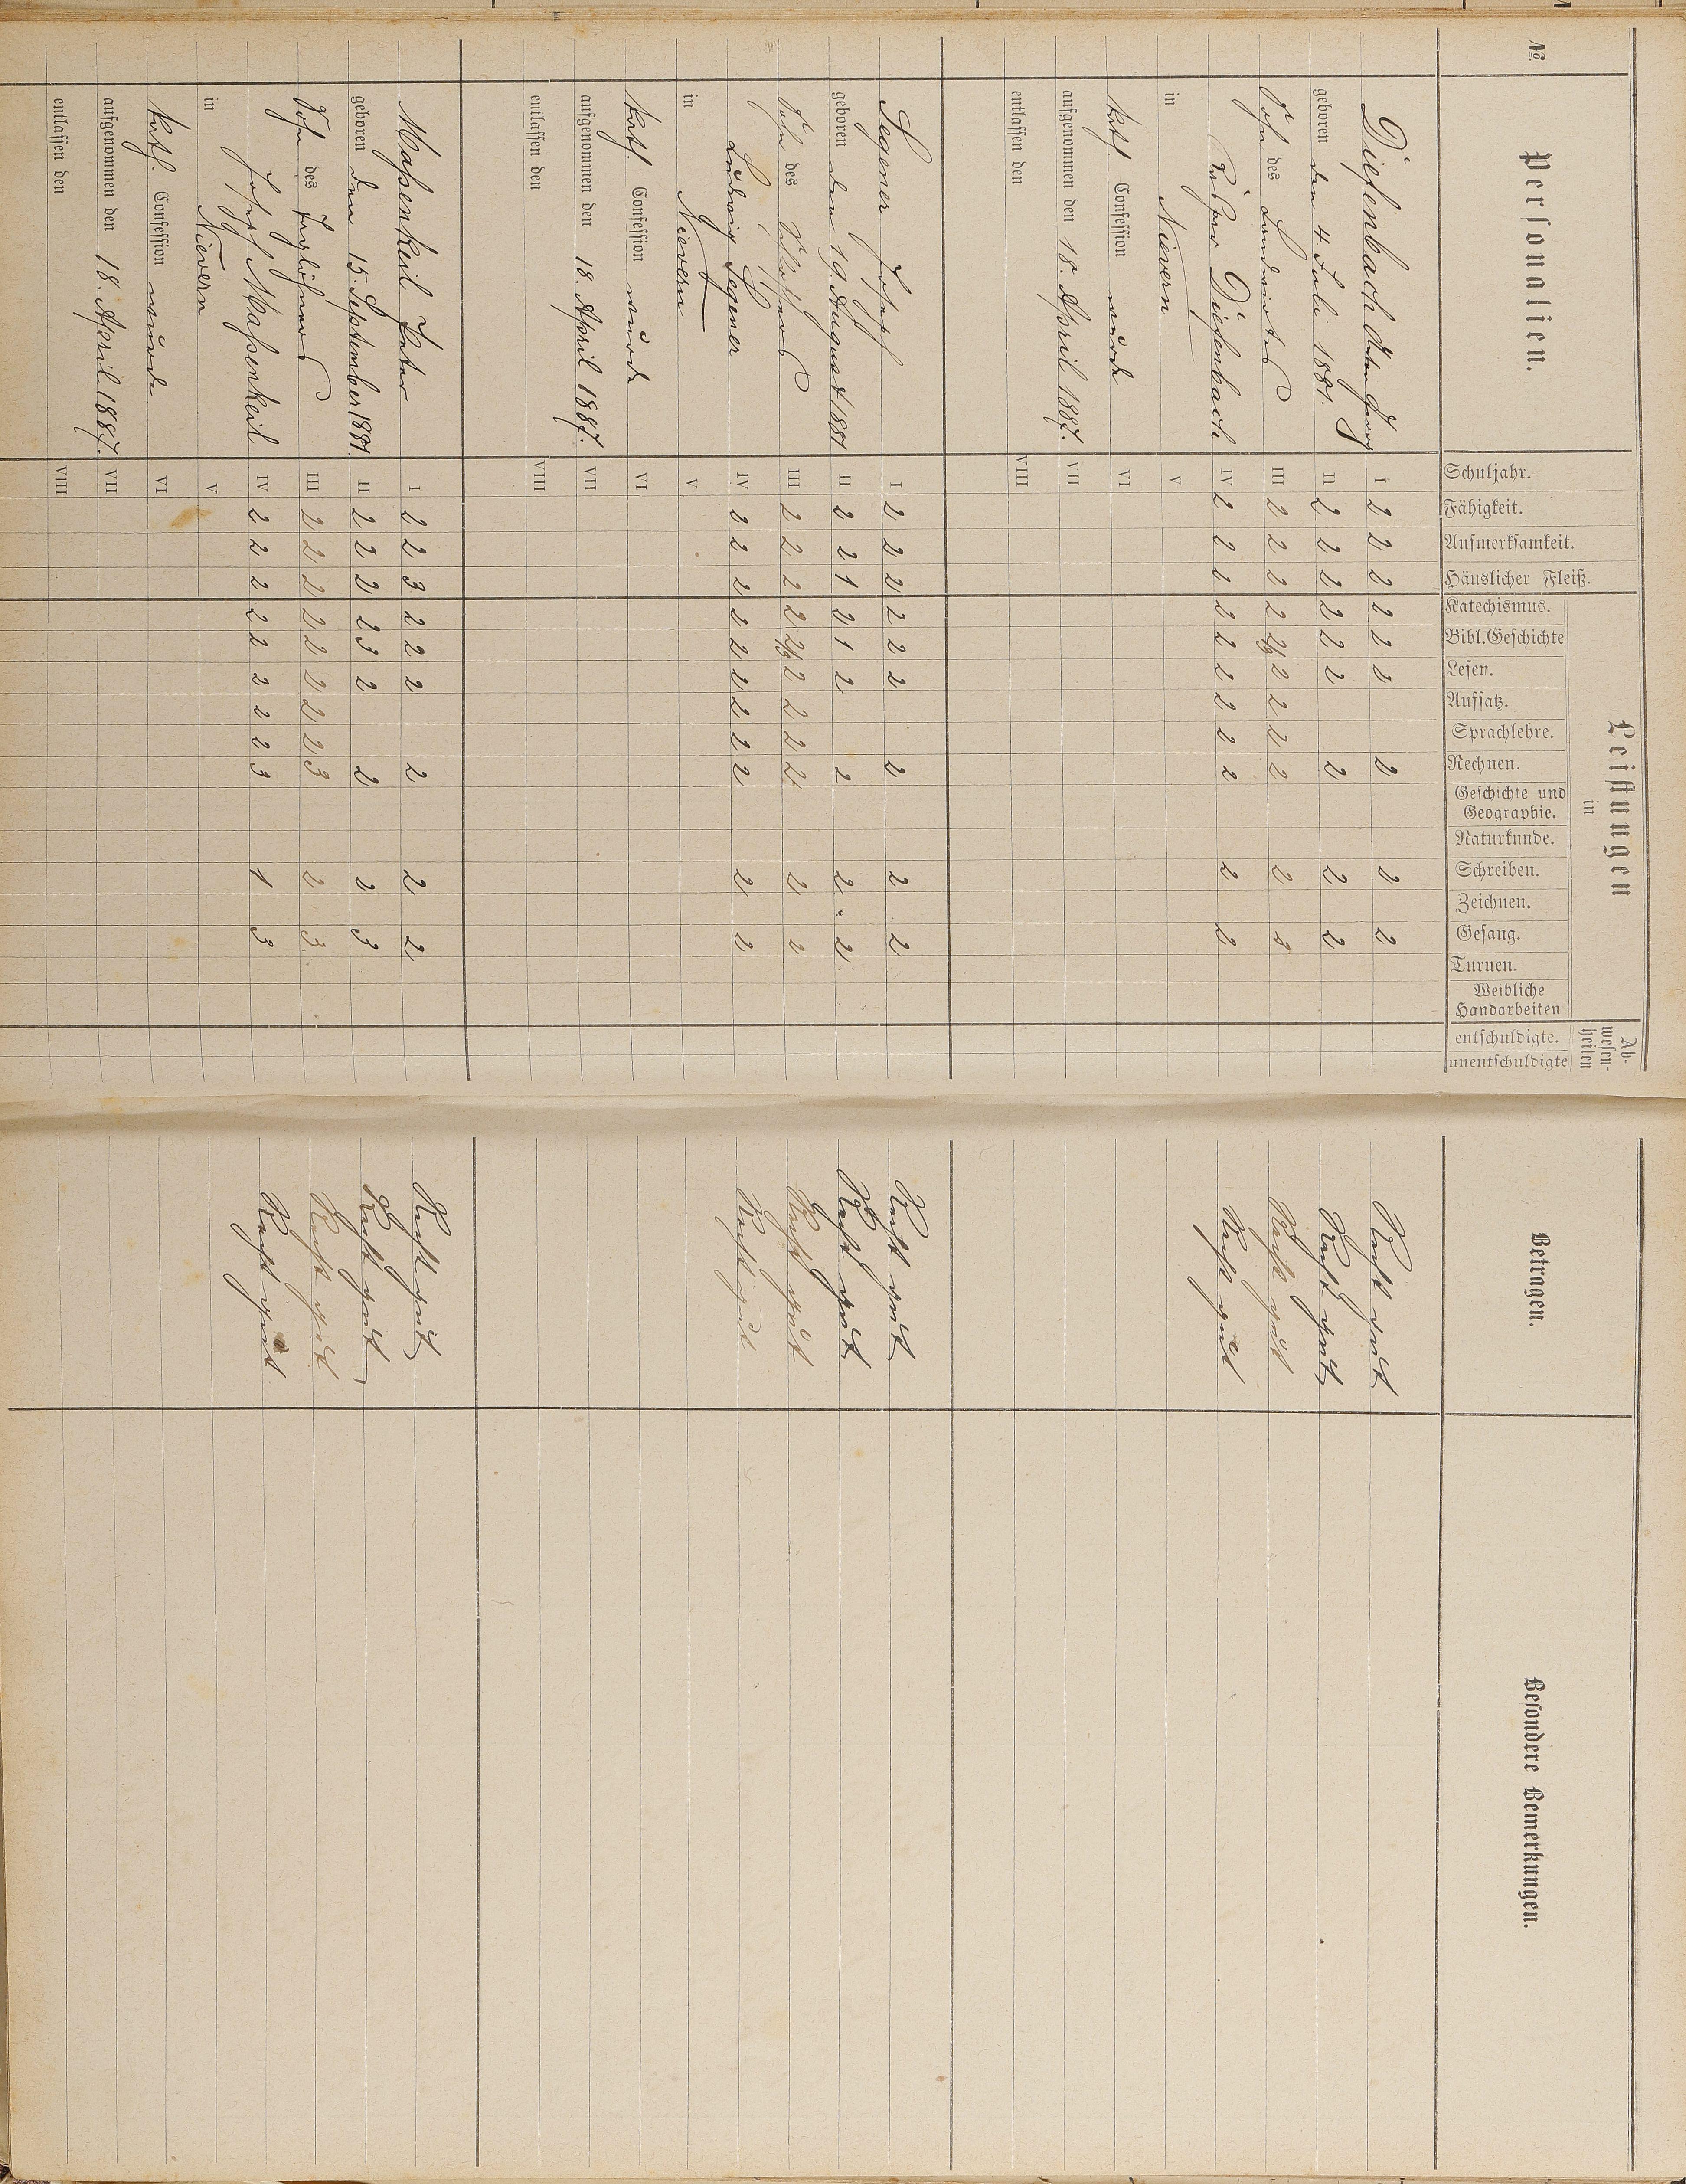 № Personalien. Leistungen in Ab-wesen-heiten Betragen. Besondere Bemerkungen.
Schuljahr. Fähigkeit. Aufmerksamkeit. Häuslicher Fleiß. Katechismus. Bibl. Geschichte Lesen. Aufsatz. Sprachlehre. Rechnen. Geschichte und Geographie. Naturkunde. Schreiben. Zeichnen. Gesang. Turnen. Weibliche Handarbeiten entschuldigte. unentschuldigte
Diesenbach I 2 2 2 2 2 2 2 2 2 Recht gut
geboren den 4. Juli 1881. II 2 2 2 2 2 2 2 2 2 Recht gut
Sohn des Landwirtes III 2 2 2 2 2/3 2 2 2 2 2 2 Recht gut
Diesenbach IV 2 2 2 2 2 2 2 2 2 2 2 Recht gut
in Nievern V
kath. Confession wurde VI
aufgenommen den 18. April 1887. VII
entlassen den VIII
Segener Josef I 2 2 2 2 2 2 2 2 2 Recht gut
geboren den 19. August 1881 II 2 2 1 2 1 2 2 2 2 Recht gut
Sohn des III 2 2 2 2 2/3 2 2 2 2 2 2 Recht gut
Ludwig Segener IV 2 2 2 2 2 2 2 2 2 2 2 Recht gut
in Nievern V
kath. Confession wurde VI
aufgenommen den 18. April 1887. VII
entlassen den VIII
Maßenkeil Peter I 2 2 3 2 2 2 2 2 2 Recht gut
geboren den 15. September 1881. II 2 2 2 2 3 2 2 2 3 Recht gut
Sohn des Taglöhners III 2 2 2 2 2 2 2 2 3 2 3. Recht gut
Josef Maßenkeil IV 2 2 2 2 2 2 2 2 3 1 3 Recht gut
in Nievern V
kath. Confession wurde VI
aufgenommen den 18. April 1887. VII
entlassen den VIII